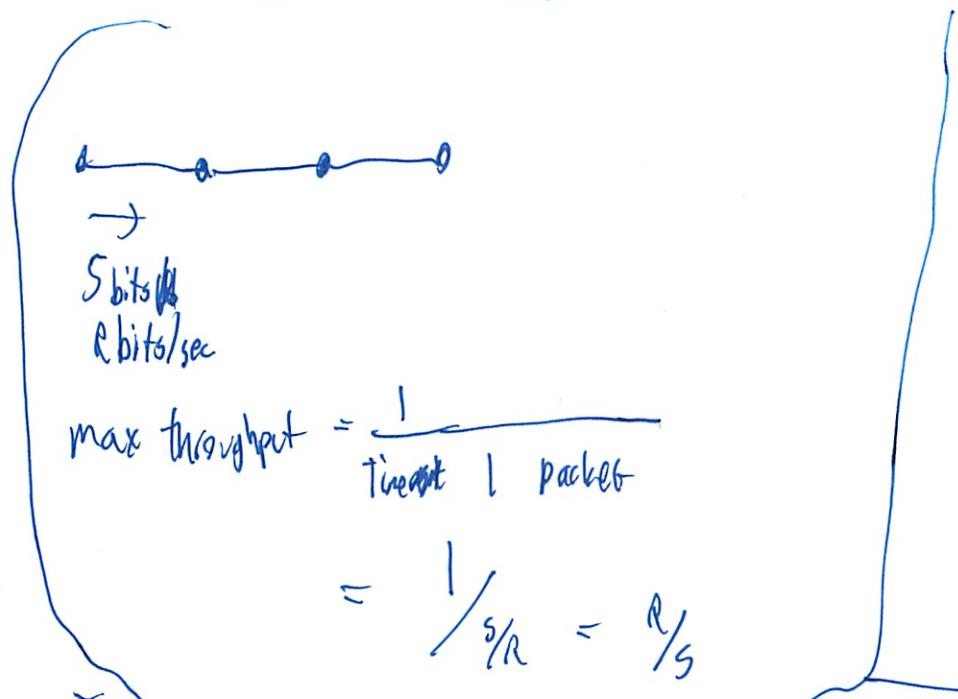 →
S bits
R bits/sec
max throughput = 1 / Time 1 packet
= 1 / S/R = R/S